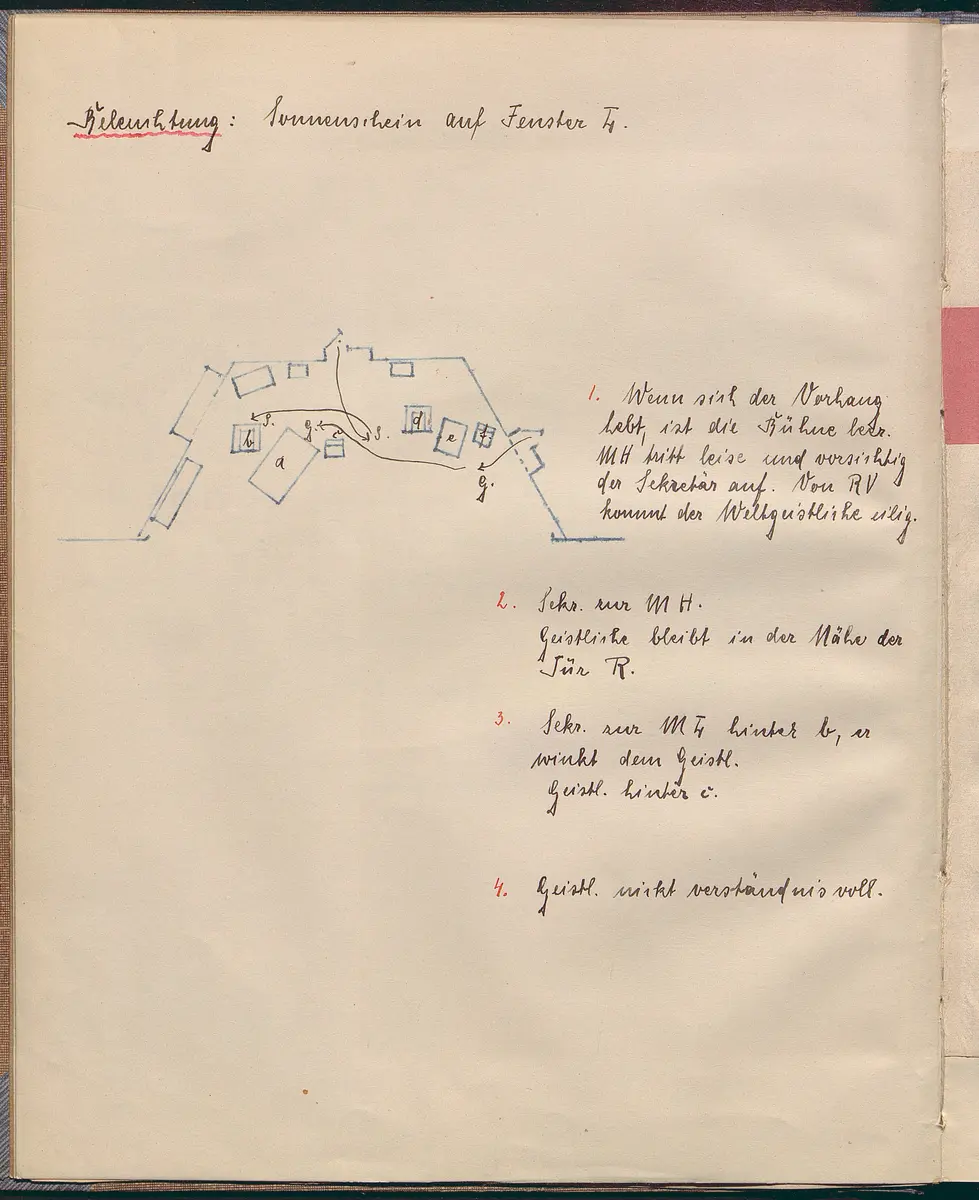 Beleuchtung: Sonnenschein auf Fenster L.
S.
G.
S.
b
a
c
d
e
f
G.
1. Wenn sich der Vorhang
hebt, ist die Bühne leer.
MH tritt leise und vorsichtig
der Sekretär auf. Von RV
kommt der Weltgeistliche eilig.
2. Sekr. zur MH.
Geistliche bleibt in der Nähe der
Tür R.
3. Sekr. zur ML hinter b, er
winkt dem Geistl.
Geistl. hinter c.
4. Geistl. nickt verständnisvoll.